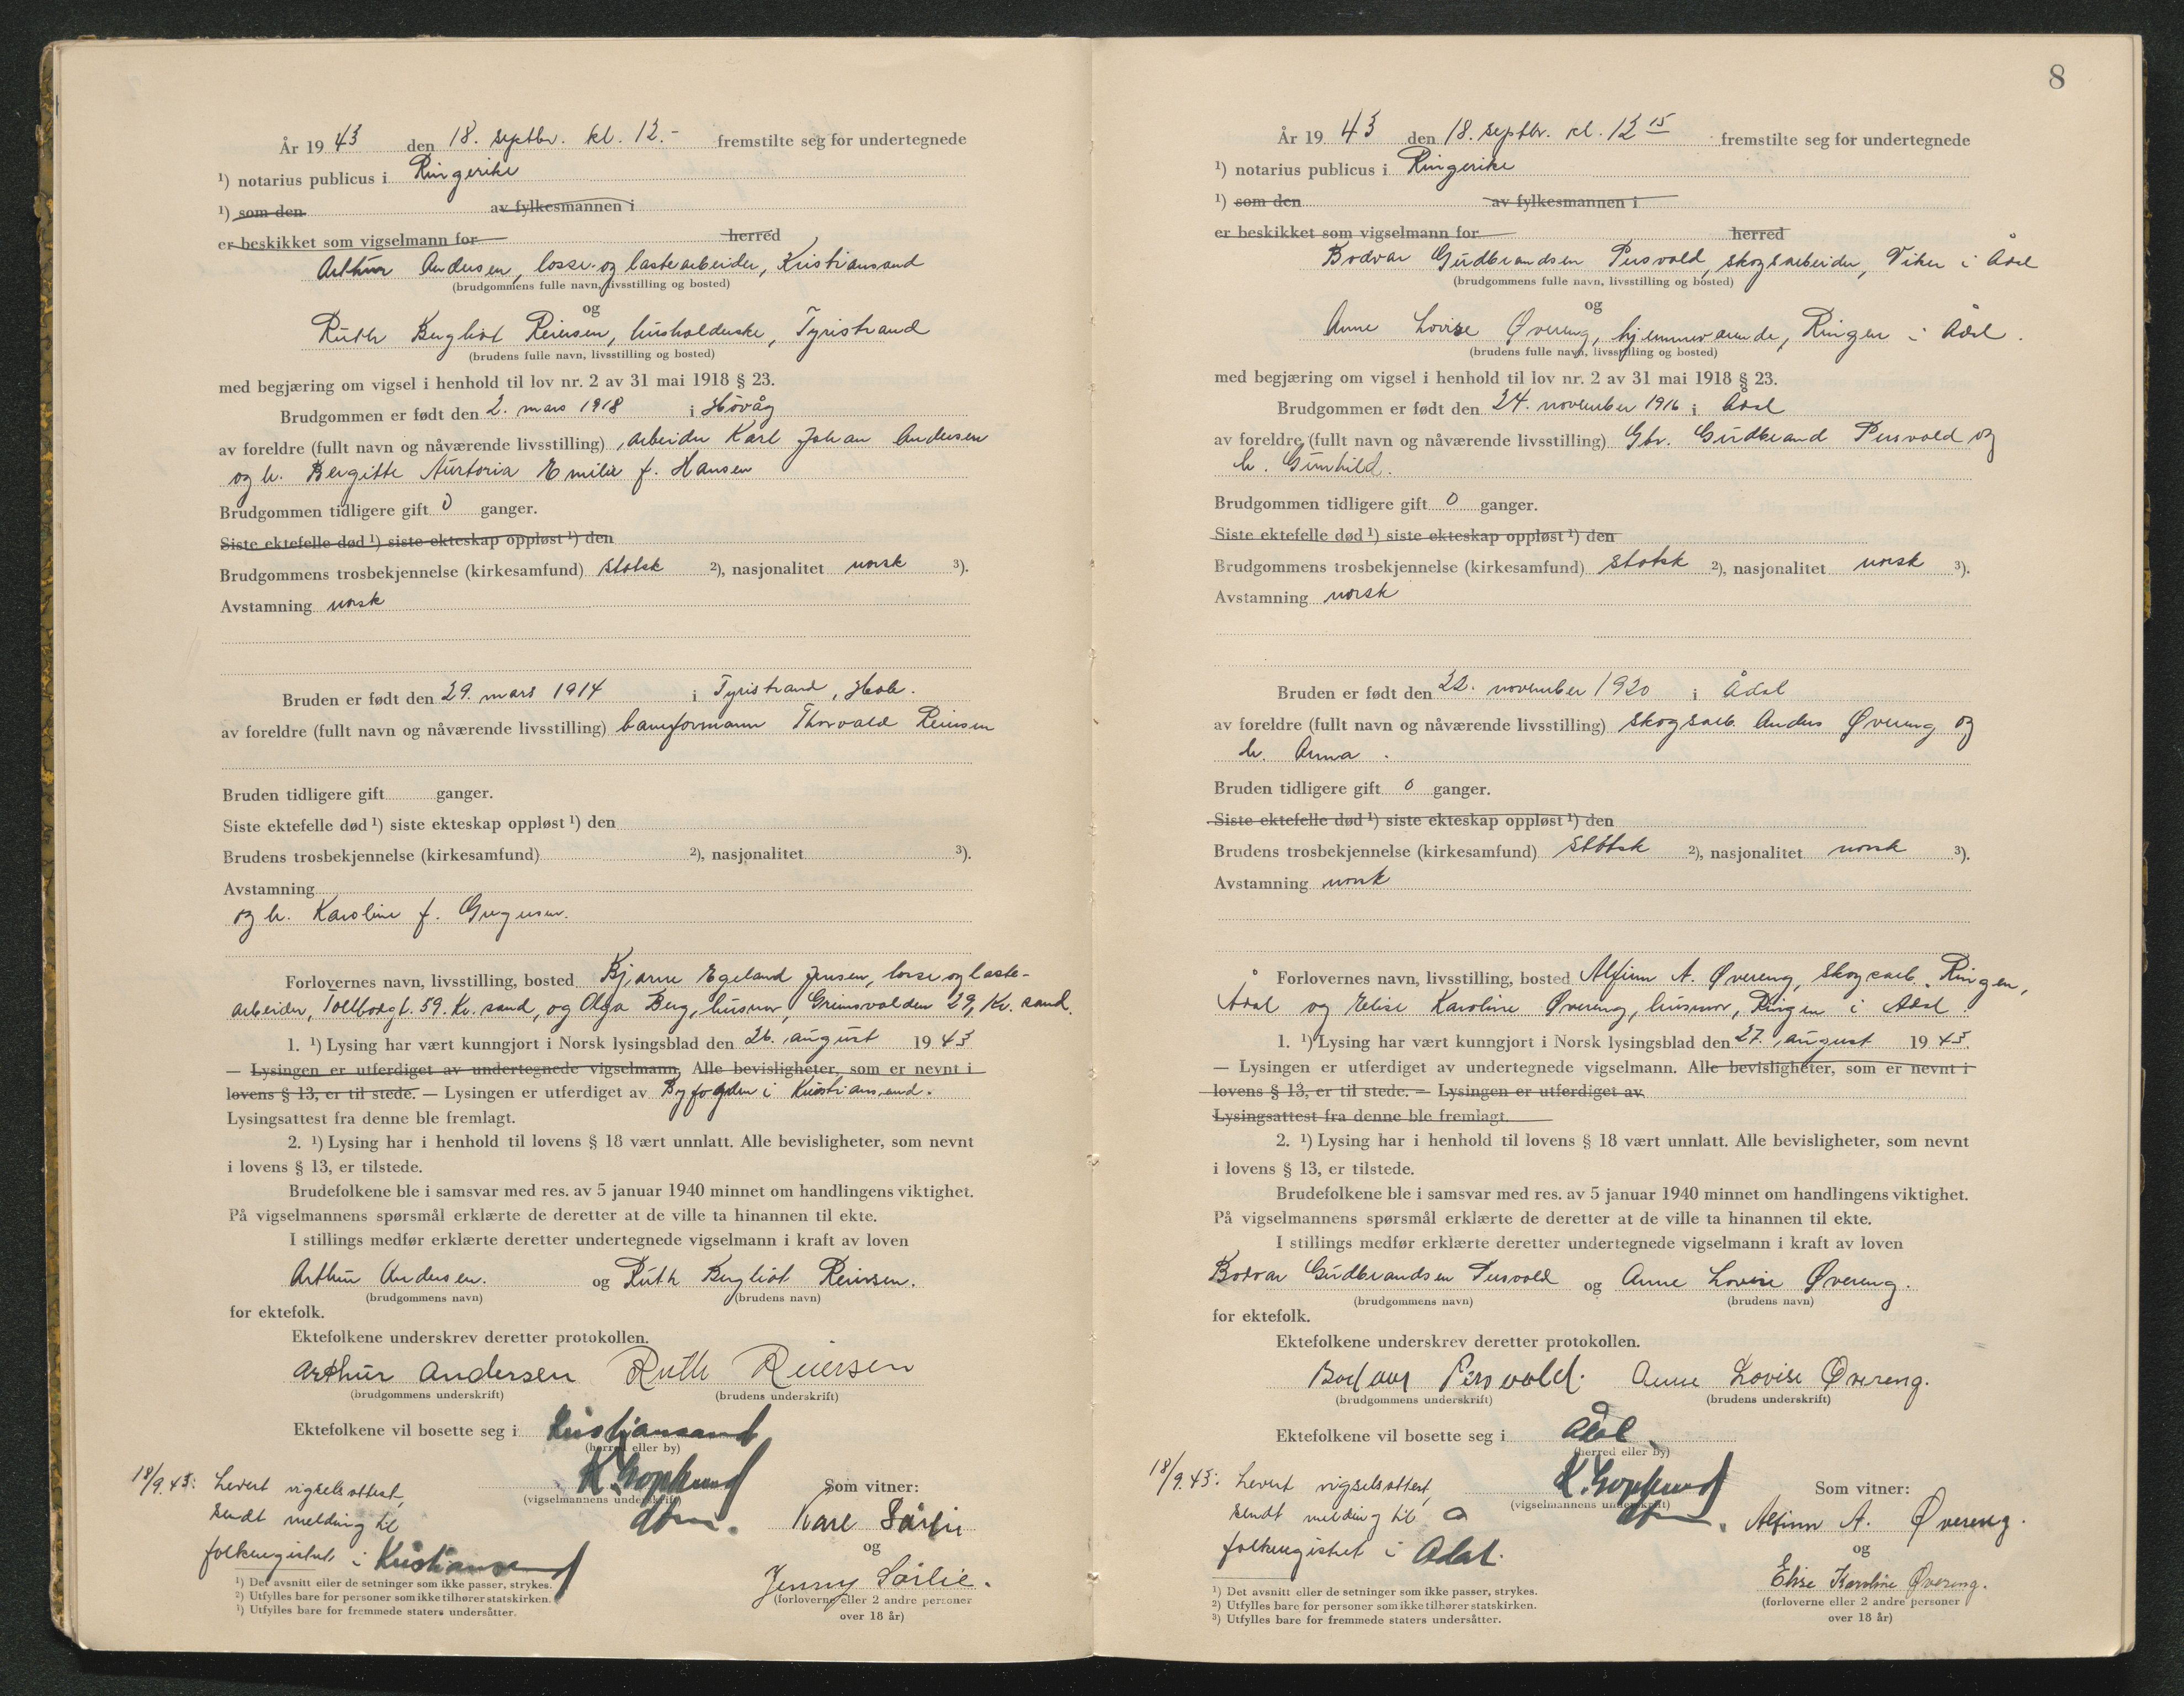 År 1943 den 18. septbr. kl. 12.- fremstilte seg for undertegnede
¹) notarius publicus i Ringerike
¹) som den av fylkesmannen i
er beskikket som vigselmann for herred
Arthur Andersen, losse- og lastearbeider, Kristiansand
(brudgommens fulle navn, livsstilling og bosted)
og
Ruth Bergliot Reiersen, husholderske, Tyristrand
(brudens fulle navn, livsstilling og bosted)
med begjæring om vigsel i henhold til lov nr. 2 av 31 mai 1918 § 23.
Brudgommen er født den 2. mars 1918 i Høvåg
av foreldre (fullt navn og nåværende livsstilling) arbeider Karl Johan Andersen
og h. Bergitte Emilie f. Hansen
Brudgommen tidligere gift 0 ganger.
Siste ektefelle død ¹) siste ekteskap oppløst ¹) den
Brudgommens trosbekjennelse (kirkesamfund) statsk ²), nasjonalitet norsk ³).
Avstamning norsk
Bruden er født den 29. mars 1914 i Tyristrand, Hole.
av foreldre (fullt navn og nåværende livsstilling) baneformann Thorvald Reiersen
Bruden tidligere gift ganger.
Siste ektefelle død ¹) siste ekteskap oppløst ¹) den
Brudens trosbekjennelse (kirkesamfund) ²), nasjonalitet ³).
Avstamning
og h. Karoline f. Gregersen.
Forlovernes navn, livsstilling, bosted Bjarne Egeland Jensen, losse og laste-
arbeider, Tollbodgt. 59. Kr. sand, og Olga Berg, husmor, Grimsvolden 29, Kr. sand.
1. ¹) Lysing har vært kunngjort i Norsk lysingsblad den 26. august 1943
— Lysingen er utferdiget av undertegnede vigselmann, Alle bevisligheter, som er nevnt i
lovens § 13, er til stede. — Lysingen er utferdiget av Byfogden i Kristiansand.
Lysingsattest fra denne ble fremlagt.
2. ¹) Lysing har i henhold til lovens § 18 vært unnlatt. Alle bevisligheter, som nevnt
i lovens § 13, er tilstede.
Brudefolkene ble i samsvar med res. av 5 januar 1940 minnet om handlingens viktighet.
På vigselmannens spørsmål erklærte de deretter at de ville ta hinannen til ekte.
I stillings medfør erklærte deretter undertegnede vigselmann i kraft av loven
Arthur Andersen. og Ruth Bergliot Reiersen.
(brudgommens navn) (brudens navn)
for ektefolk.
Ektefolkene underskrev deretter protokollen.
Arthur Andersen Ruth Reiersen
(brudgommens underskrift) (brudens underskrift)
Ektefolkene vil bosette seg i Kristiansand
(herred eller by)
18/9.43: Levert vigselsattest,
sendt melding til
folkeregistret i Kristiansand
(vigselmannens underskrift)
Som vitner:
Kåre Sørlie
og
Jenny Sørlie.
(forloverne eller 2 andre personer
over 18 år)
¹) Det avsnitt eller de setninger som ikke passer, strykes.
²) Utfylles bare for personer som ikke tilhører statskirken.
³) Utfylles bare for fremmede staters undersåtter.
8
År 1943 den 18. septbr. kl. 12 15 fremstilte seg for undertegnede
¹) notarius publicus i Ringerike
¹) som den av fylkesmannen i
er beskikket som vigselmann for herred
Bodvar Gudbrandsen Persvold, skogsarbeider, Viker i Ådal
(brudgommens fulle navn, livsstilling og bosted)
og
Anne Lovise Øvereng, hjemmeværende, Ringen i Ådal.
(brudens fulle navn, livsstilling og bosted)
med begjæring om vigsel i henhold til lov nr. 2 av 31 mai 1918 § 23.
Brudgommen er født den 24. november 1916 i Ådal
av foreldre (fullt navn og nåværende livsstilling) Gbr. Gudbrand Persvold og
h. Gunhild.
Brudgommen tidligere gift 0 ganger.
Siste ektefelle død ¹) siste ekteskap oppløst ¹) den
Brudgommens trosbekjennelse (kirkesamfund) statsk ²), nasjonalitet norsk ³).
Avstamning norsk
Bruden er født den 22. november 1920 i Ådal
av foreldre (fullt navn og nåværende livsstilling) skogsarb. Anders Øvereng og
h. Anna.
Bruden tidligere gift 0 ganger.
Siste ektefelle død ¹) siste ekteskap oppløst ¹) den
Brudens trosbekjennelse (kirkesamfund) statsk ²), nasjonalitet norsk ³).
Avstamning norsk
Forlovernes navn, livsstilling, bosted Alfinn A. Øvereng, skogsarb. Ringen,
Ådal og Elise Karoline Øvereng, husmor, Ringen i Ådal.
1. ¹) Lysing har vært kunngjort i Norsk lysingsblad den 27. august 1943.
— Lysingen er utferdiget av undertegnede vigselmann. Alle bevisligheter, som er nevnt i
lovens § 13, er til stede. — Lysingen er utferdiget av
Lysingsattest fra denne ble fremlagt.
2. ¹) Lysing har i henhold til lovens § 18 vært unnlatt. Alle bevisligheter, som nevnt
i lovens § 13, er tilstede.
Brudefolkene ble i samsvar med res. av 5 januar 1940 minnet om handlingens viktighet.
På vigselmannens spørsmål erklærte de deretter at de ville ta hinannen til ekte.
I stillings medfør erklærte deretter undertegnede vigselmann i kraft av loven
Bodvar Gudbrandsen Persvold og Anne Lovise Øvereng.
(brudgommens navn) (brudens navn)
for ektefolk.
Ektefolkene underskrev deretter protokollen.
Bodvar Persvold. Anne Lovise Øvereng.
(brudgommens underskrift) (brudens underskrift)
Ektefolkene vil bosette seg i Ådal
(herred eller by)
18/9.43: Levert vigselsattest,
sendt melding til
folkeregistret i Ådal.
(vigselmannens underskrift)
Som vitner:
Alfinn A. Øvereng.
og
Elise Karoline Øvereng.
(forloverne eller 2 andre personer
over 18 år)
¹) Det avsnitt eller de setninger som ikke passer, strykes.
²) Utfylles bare for personer som ikke tilhører statskirken.
³) Utfylles bare for fremmede staters undersåtter.